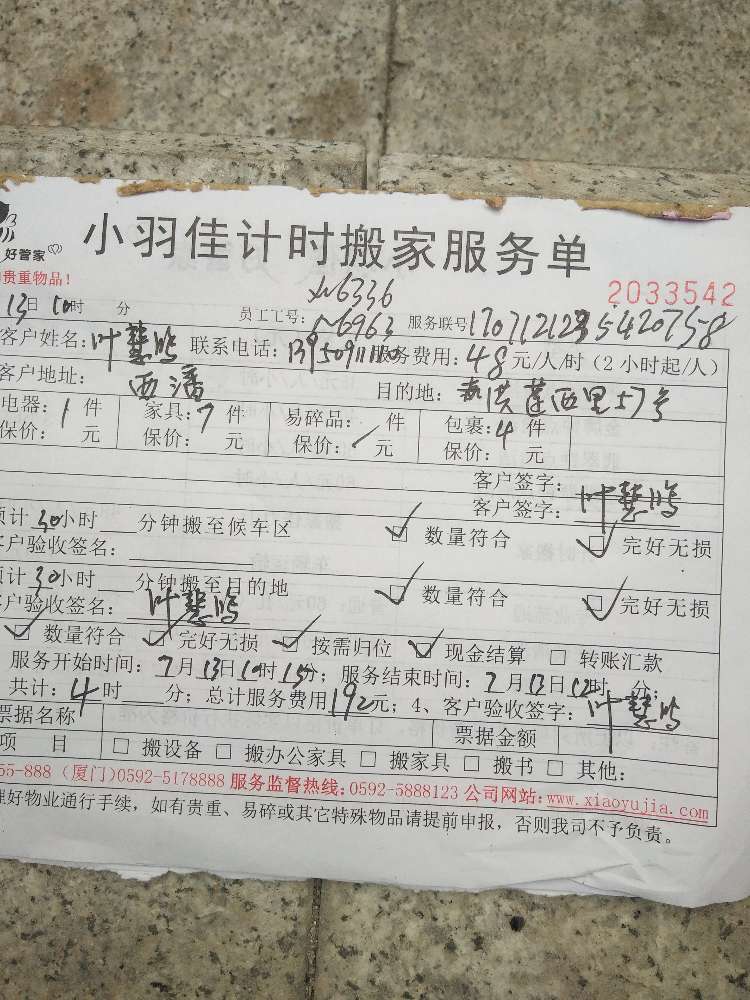 小羽佳计时搬家服务单
好管家
贵重物品！
2033542
13日10时 分 员工工号：6336 6963 服务联号
客户姓名：叶慧鸣 联系电话： 服务费用：48元/人/时（2小时起/人）
客户地址：西潘 目的地：洪莲西里57号
电器：1件 家具：7件 易碎品： 件 包裹：4件
保价： 元 保价： 元 保价： 元 保价： 元
客户签字：
客户签字：叶慧鸣
预计30小时 分钟搬至候车区 ☑ 数量符合 ☑ 完好无损
客户验收签名：
预计30小时 分钟搬至目的地 ☑ 数量符合 ☑ 完好无损
客户验收签名：叶慧鸣
☑ 数量符合 ☑ 完好无损 ☑ 按需归位 ☑ 现金结算 □ 转账汇款
服务开始时间：7月13日10时15分；服务结束时间：7月13日12时 分；
共计：4时 分；总计服务费用192元；4、客户验收签字：叶慧鸣
票据名称 票据金额
项 目 □ 搬设备 □ 搬办公家具 □ 搬家具 □ 搬书 □ 其他：
55-888（厦门）0592-5178888 服务监督热线：0592-5888123 公司网站：www.xiaoyujia.com
理好物业通行手续，如有贵重、易碎或其它特殊物品请提前申报，否则我司不予负责。